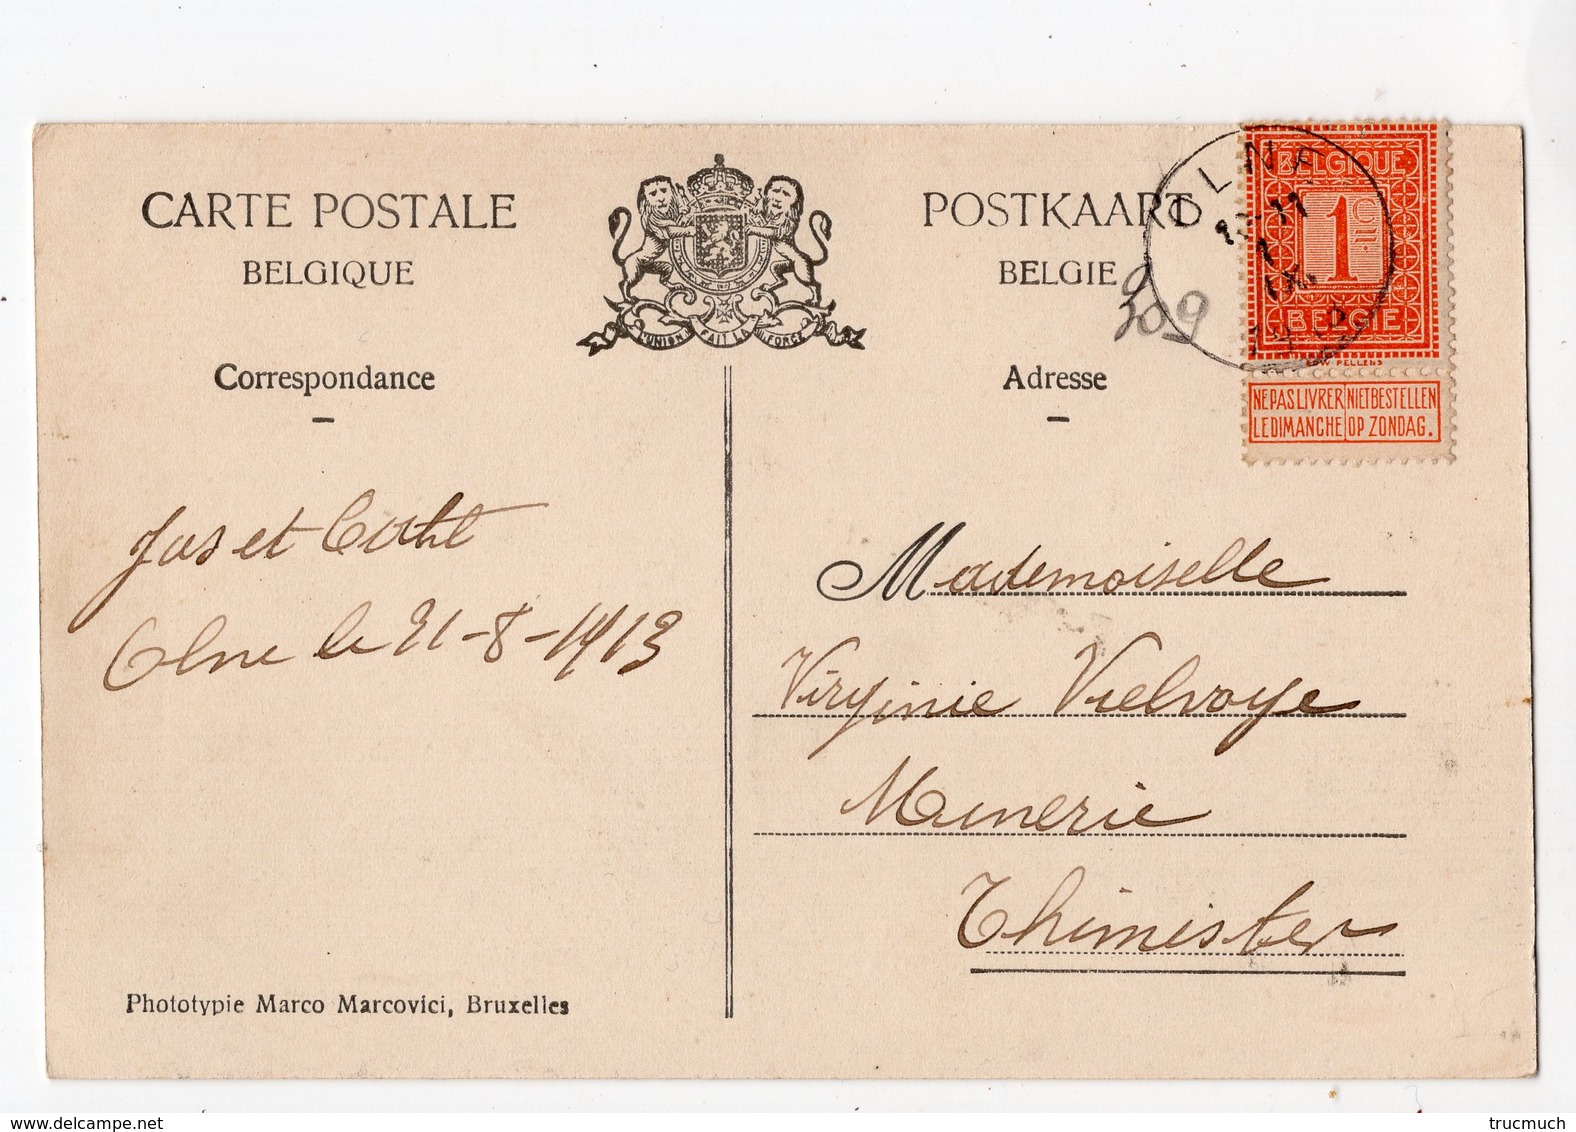 CARTE POSTALE
BELGIQUE
POSTKAART
BELGIE
L'UNION FAIT LA FORCE
Correspondance
Adresse
OLNE
11
1
IX
1913
309
BELGIQUE
1C
BELGIE
PELLENS
NE PAS LIVRER NIET BESTELLEN
LE DIMANCHE OP ZONDAG.
et
Olne le 31-8-1913
Mademoiselle
Virginie Vielvoye
Minerie
Thimister
Phototypie Marco Marcovici, Bruxelles
trucmuch
www.delcampe.net